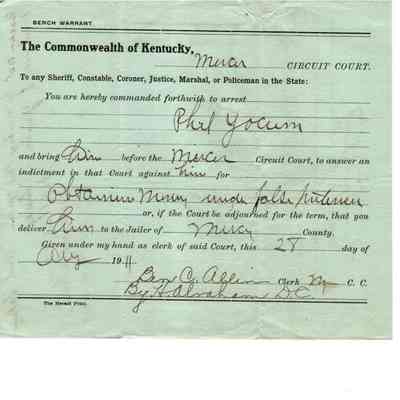 BENCH WARRANT.
The Commonwealth of Kentucky,
Mercer CIRCUIT COURT.
To any Sheriff, Constable, Coroner, Justice, Marshal, or Policeman in the State:
You are hereby commanded forthwith to arrest
Phil Yocum
and bring him before the Mercer Circuit Court, to answer an
indictment in that Court against him for
Obtaining Money under false pretenses
or, if the Court be adjourned for the term, that you
deliver him to the Jailer of Mercer County.
Given under my hand as clerk of said Court, this 28 day of
Aug 1911
Ben C. Allin Clerk C. C.
By H. Abraham D.C.
The Herald Print.